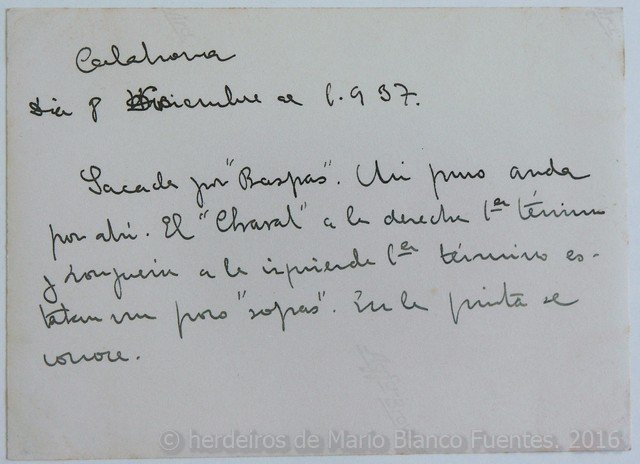 Calahorra
Dia 8 Diciembre de 1.937.
Sacada por "Baspas". Un puro anda
por ahí. El "Chaval" a la derecha 1er término
y a la izquierda 1er término es-
taban un poco "sopas". En la pinta se
conoce.
© herdeiros de Mario Blanco Fuentes. 2016